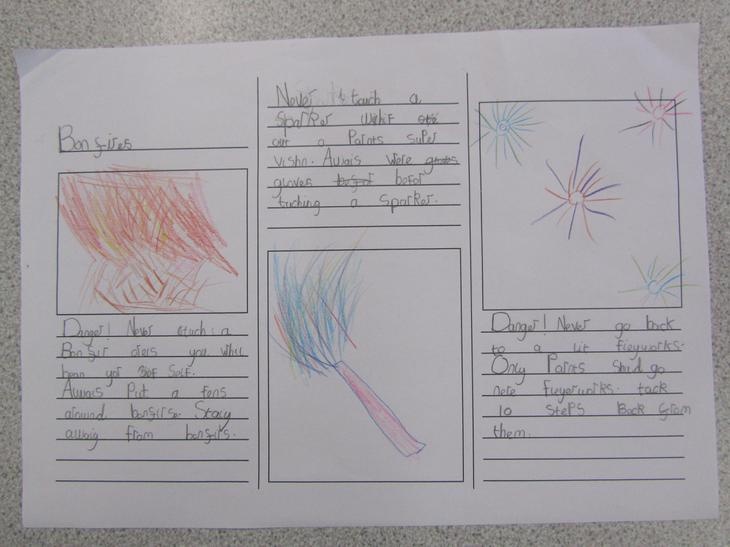 Bonfires
Danger! Never touch a
Bonfir oters you will
bern yor self.
Awais Put a fens
around bonfirse. Stay
awaig from bonfirs.
Never touch a
Sparker
out a Parints super
vishn. Awais were
gloves befor
tuching a Sparker.
Danger! Never go back
to a lit fieyworks.
Only Parints shuld go
nere fieyerworks. tack
10 steps Back from
them.